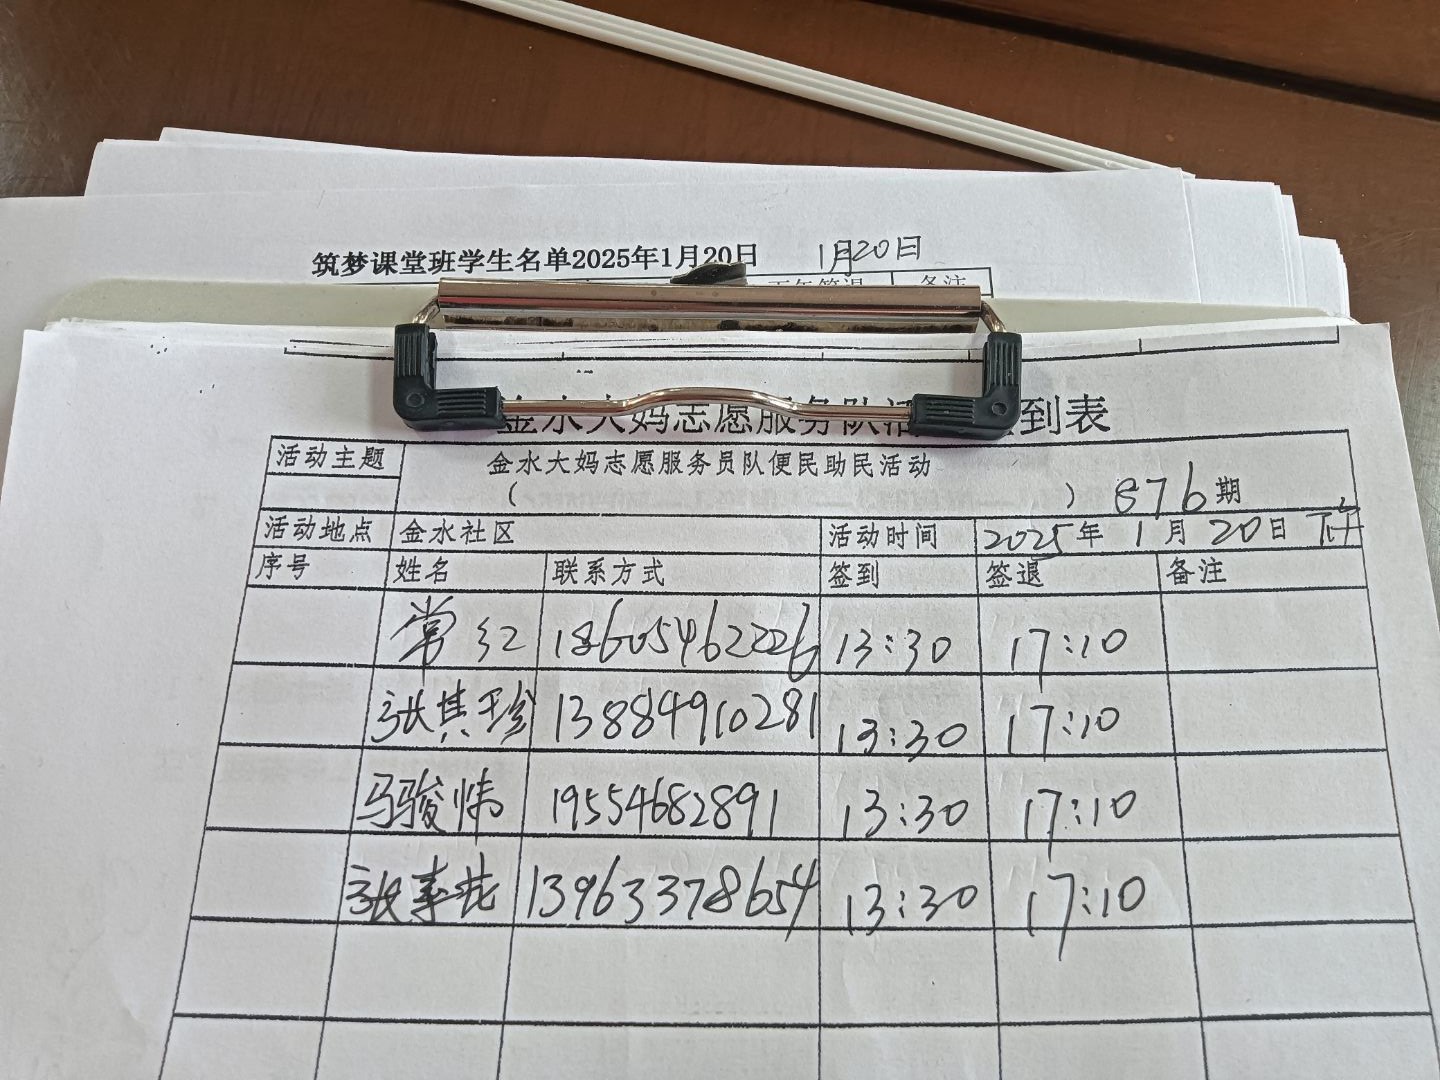 筑梦课堂班学生名单2025年1月20日 1月20日
备注
金水大妈志愿服务队活 到表
活动主题 金水大妈志愿服务员队便民助民活动
( ) 876期
活动地点 金水社区 活动时间 2025年1月20日 下午
序号 姓名 联系方式 签到 签退 备注
常红 18605462226 13:30 17:10
张其珍 13884910281 13:30 17:10
马骏炜 19554682891 13:30 17:10
张 13963378654 13:30 17:10